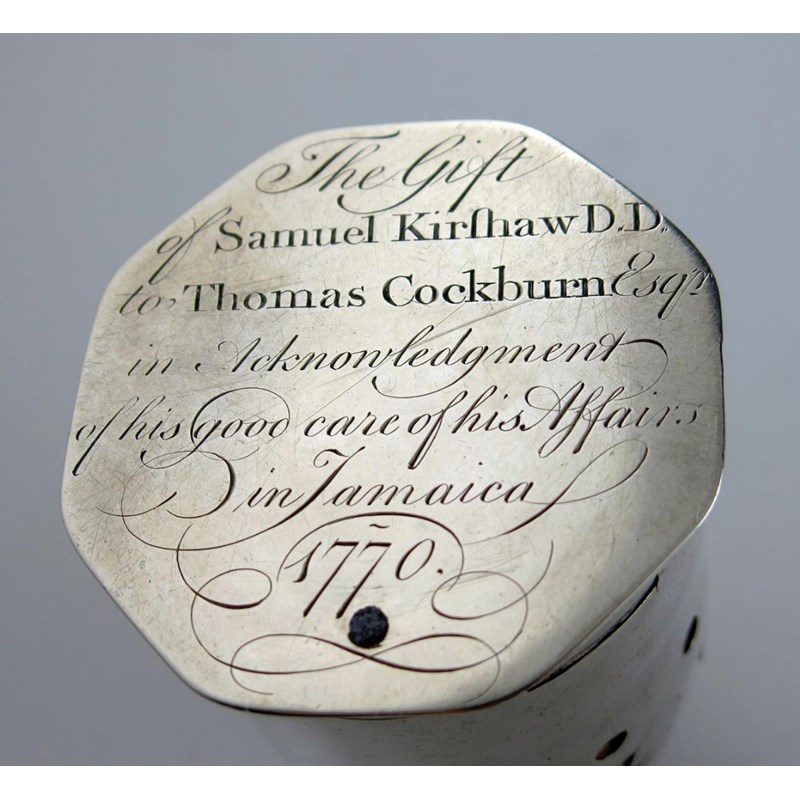 The Gift
of Samuel Kirſhaw D.D.
to Thomas Cockburn Esqr
in Acknowledgment
of his good care of his Affairs
in Jamaica
1770.